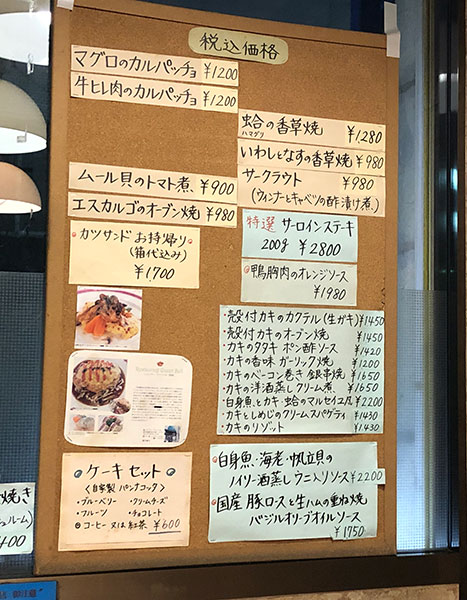 税込価格
マグロのカルパッチョ ¥1200
牛ヒレ肉のカルパッチョ ¥1200
蛤の香草焼 ¥1280
ハマグリ
いわしとなすの香草焼 ¥980
サークラウト ¥980
(ウィンナーとキャベツの酢漬け煮)
ムール貝のトマト煮 ¥900
エスカルゴのオーブン焼 ¥980
カツサンドお持帰り
(箱代込み)
¥1700
特選 サーロインステーキ
200g ¥2800
鴨胸肉のオレンジソース
¥1980
・殻付カキのカクテル(生ガキ)¥1450
・殻付カキのオーブン焼 ¥1450
・カキのタタキ ポン酢ソース ¥1420
・カキの香味ガーリック焼 ¥1200
・カキのベーコン巻き 銀串焼 ¥1650
・カキの洋酒蒸しクリーム煮 ¥1650
・白身魚とカキ・蛤のマルセイユ風 ¥2200
・カキとしめじのクリームスパゲティ ¥1430
・カキのリゾット ¥1430
ケーキセット
〈自家製パンナコッタ〉
・ブルーベリー ・クリームチーズ
・フルーツ ・チョコレート
コーヒー又は紅茶 ¥600
・白身魚・海老・帆立貝の
ノイリー酒蒸し ウニ入りソース ¥2200
・国産豚ロースと生ハムの重ね焼
バジルオリーブオイルソース
¥1750
焼き
ュルーム)
400